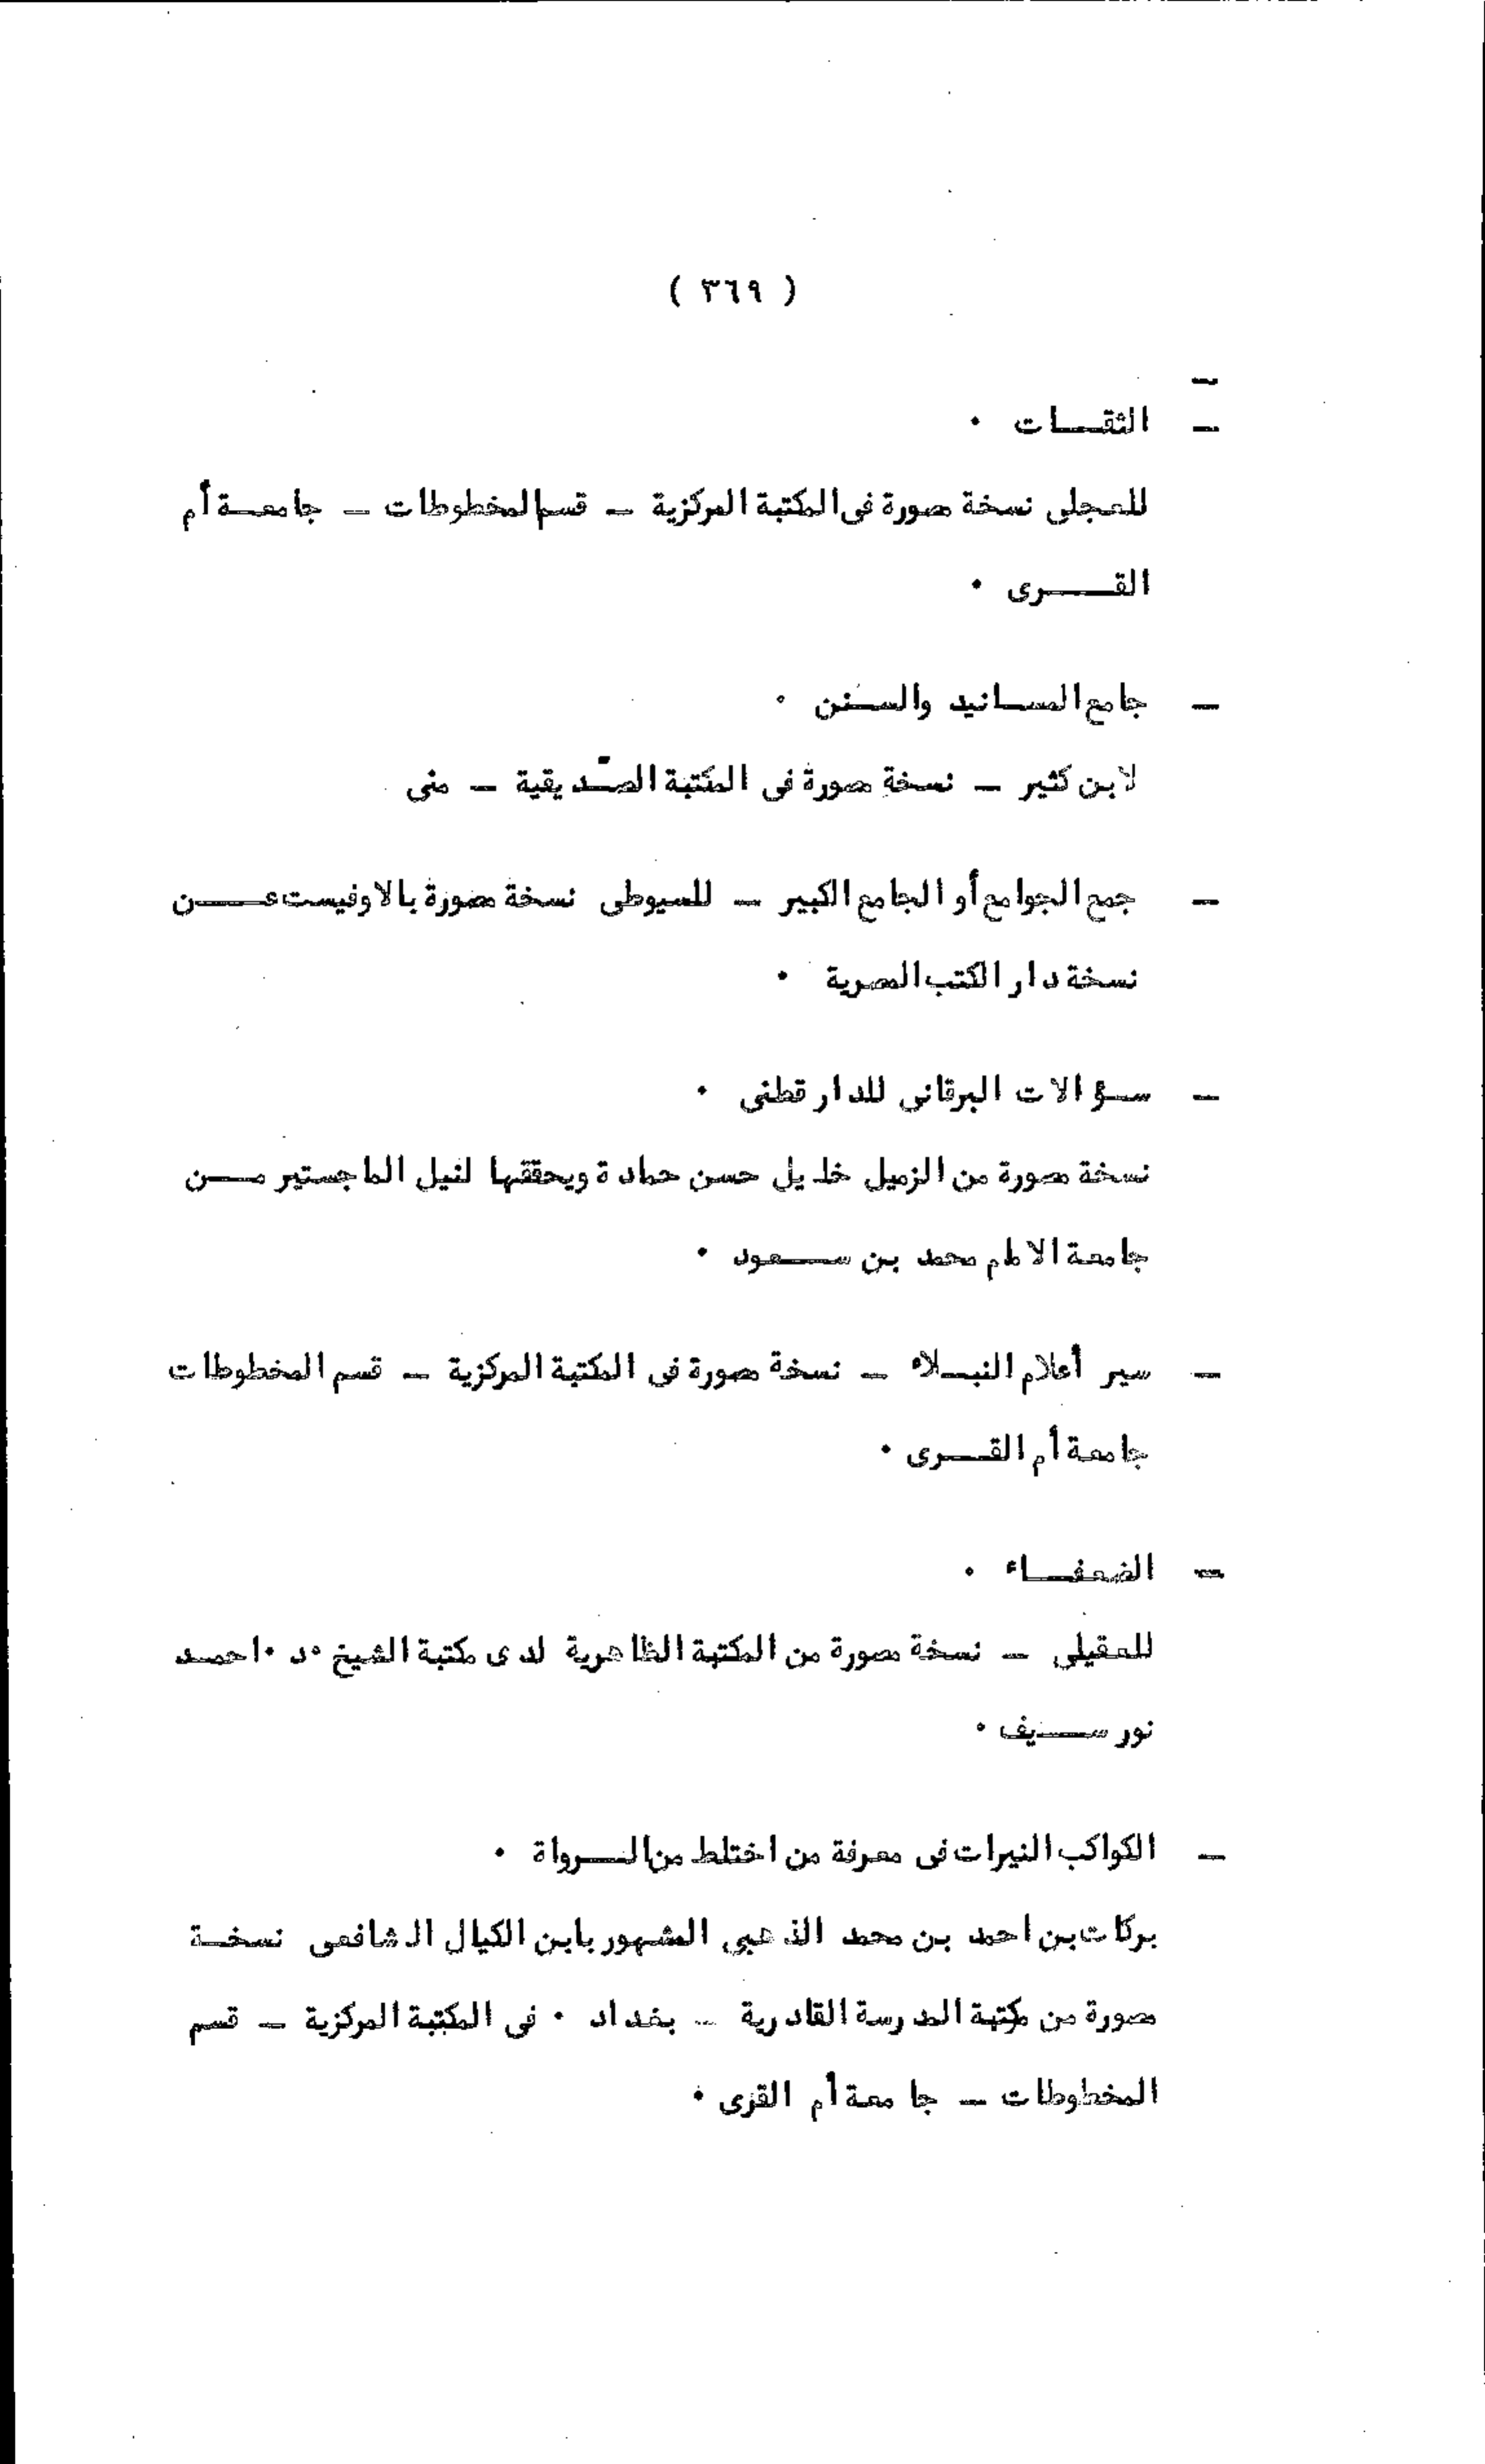 ( ٣٦٩ )
ـ
ـ الثقات ٠
للعجلى نسخة مصورة فى المكتبة المركزية ـ قسم المخطوطات ـ جامعة أم
القرى ٠
ـ جامع المسانيد والسنن ٠
لابن كثير ـ نسخة مصورة فى المكتبة الصّديقية ـ منى
ـ جمع الجوامع أو الجامع الكبير ـ للسيوطى نسخة مصورة بالاوفيست عن
نسخة دار الكتب المصرية ٠
ـ سؤالات البرقانى للدارقطنى ٠
نسخة مصورة من الزميل خليل حسن حمادة ويحققها لنيل الماجستير من
جامعة الامام محمد بن سعود ٠
ـ سير أعلام النبلاء ـ نسخة مصورة فى المكتبة المركزية ـ قسم المخطوطات
جامعة أم القرى ٠
ـ الضعفاء ٠
للعقيلى ـ نسخة مصورة من المكتبة الظاهرية لدى مكتبة الشيخ ٠د ٠احمد
نور سيف ٠
ـ الكواكب النيرات فى معرفة من اختلط من الرواة ٠
بركات بن احمد بن محمد الذهبى المشهور بابن الكيال الشافعى نسخة
مصورة من مكتبة المدرسة القادرية ـ بغداد ٠ فى المكتبة المركزية ـ قسم
المخطوطات ـ جامعة أم القرى ٠